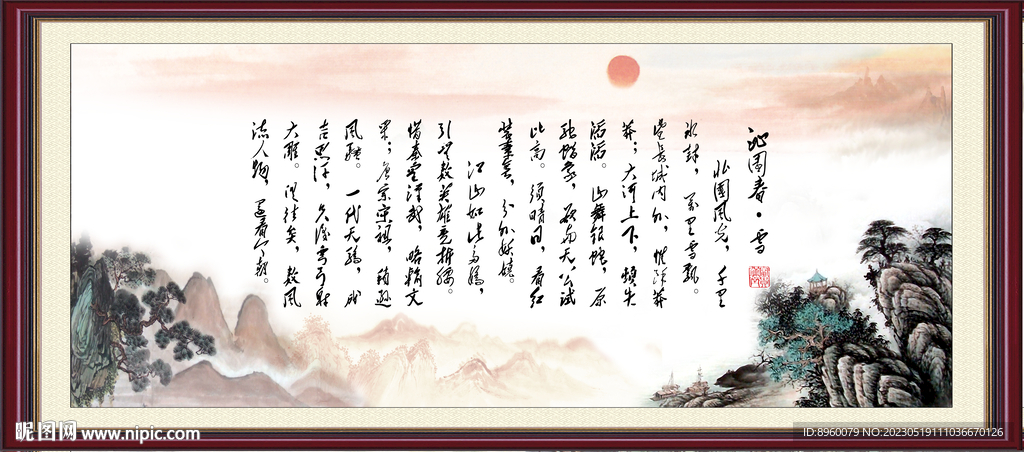 沁園春·雪
北國风光，千里
冰封，万里雪飘。
望长城内外，惟馀莽
莽；大河上下，顿失
滔滔。山舞银蛇，原
驰蜡象，欲与天公试
比高。须晴日，看红
装素裹，分外妖娆。
江山如此多娇，
引无数英雄竞折腰。
惜秦皇汉武，略输文
采；唐宗宋祖，稍逊
风骚。一代天骄，成
吉思汗，只识弯弓射
大雕。俱往矣，数风
流人物，还看今朝。
昵图网 www.nipic.com
ID:8960079 NO:20230519111036670126